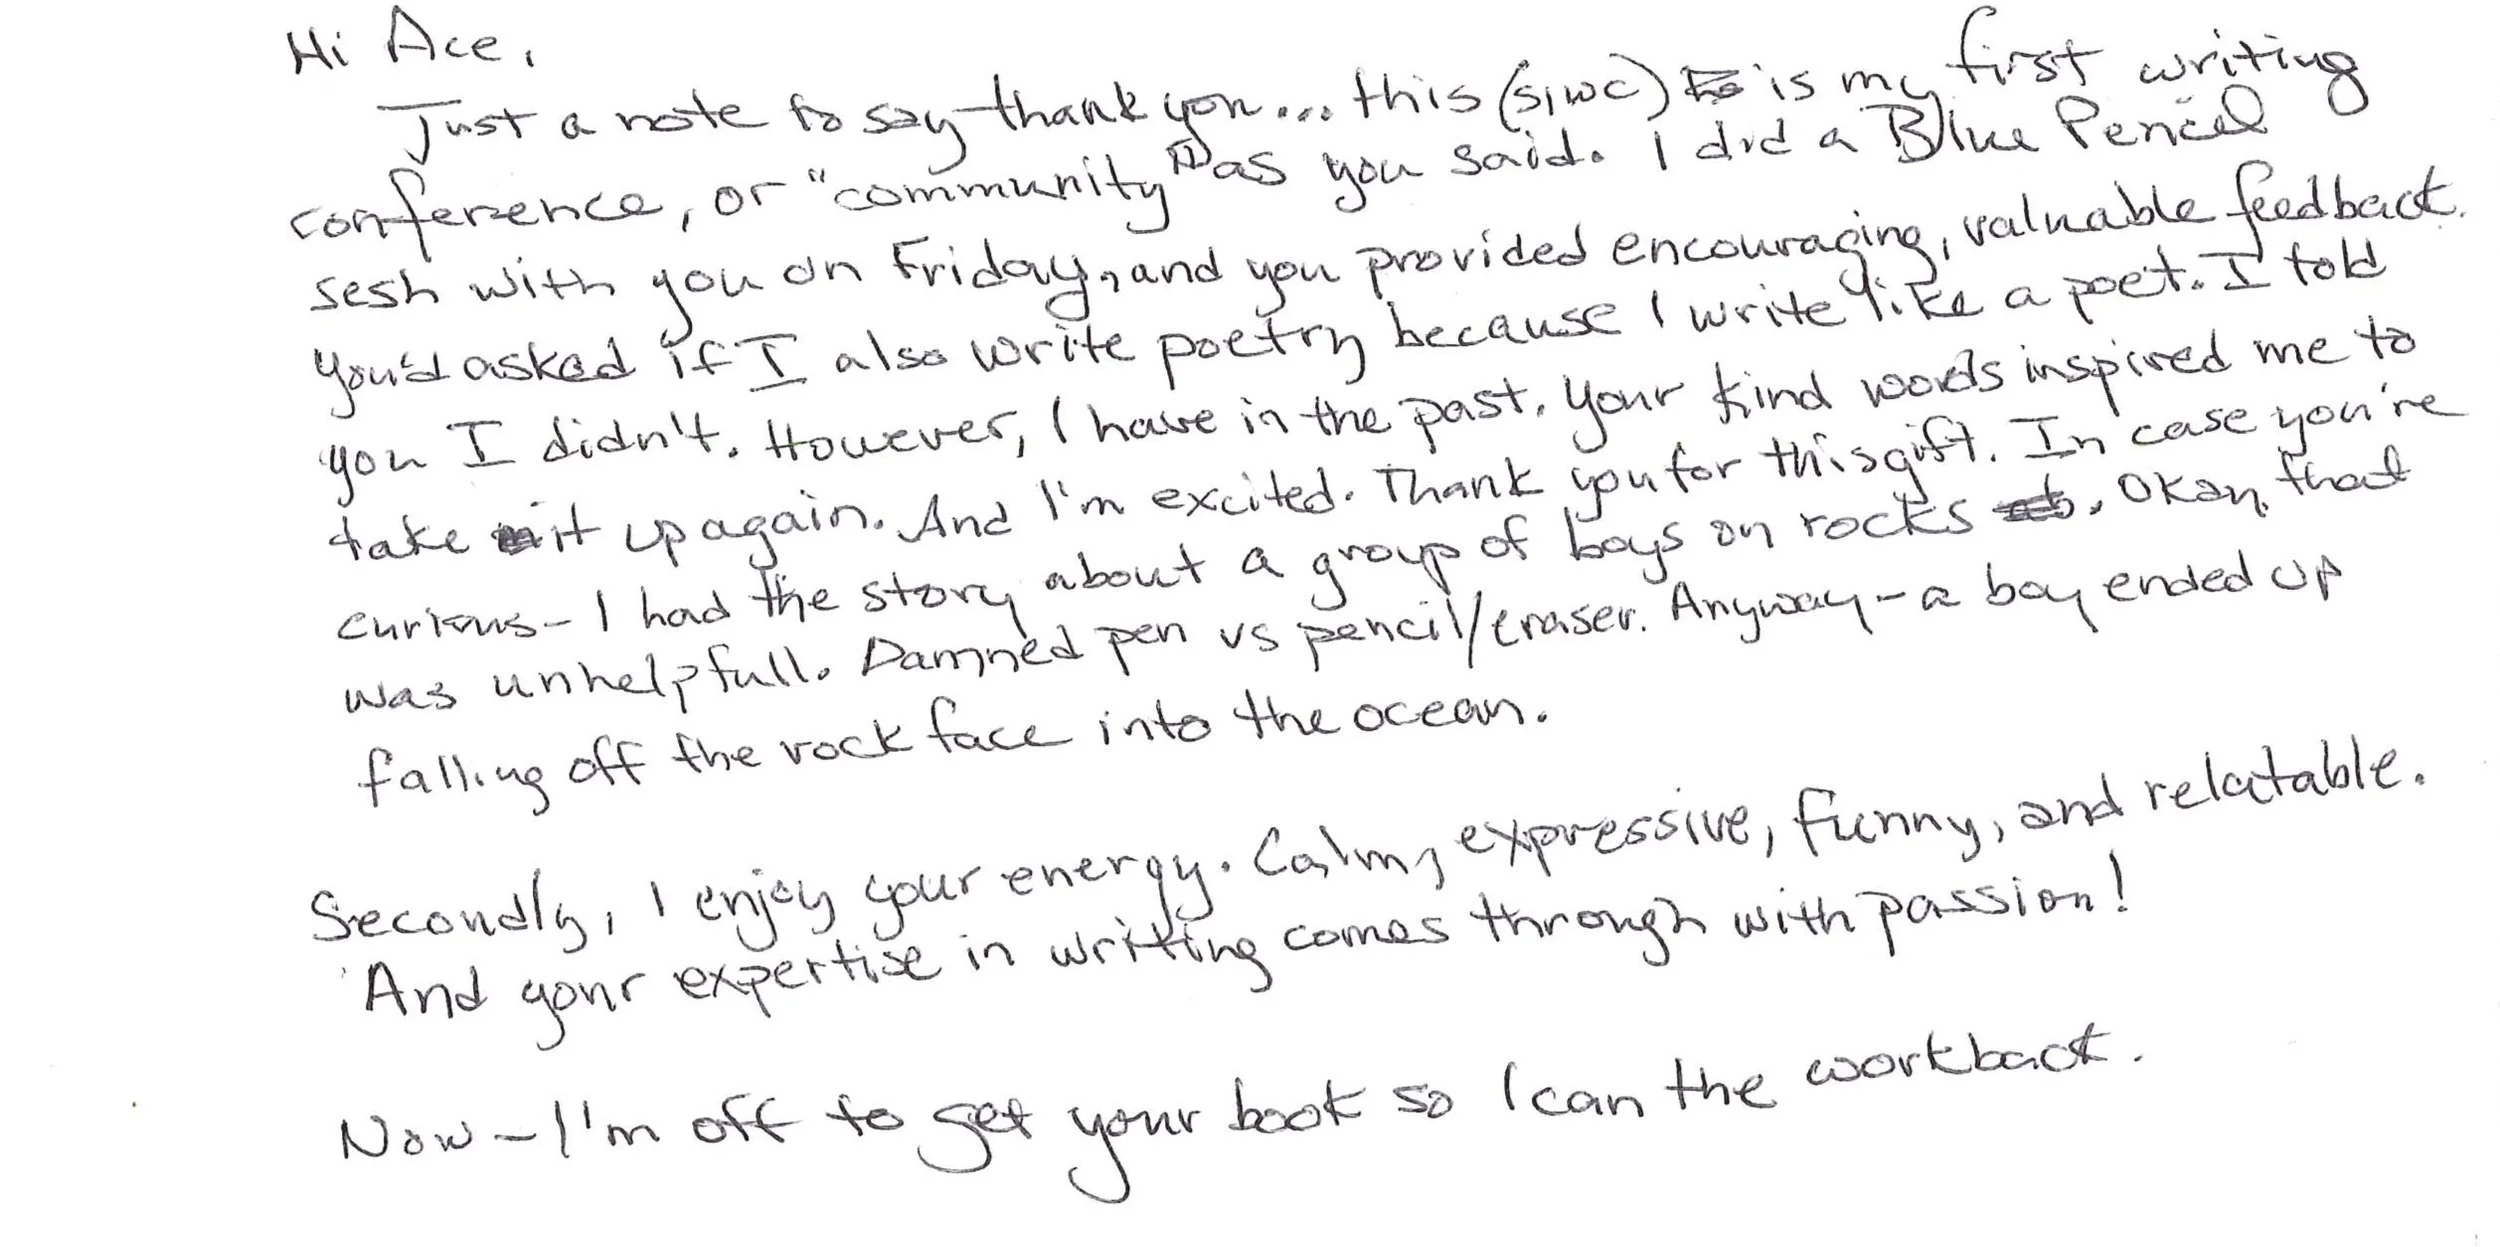 Hi Ace,
Just a note to say thank you... this (SiWC) is my first writing
conference, or "community" as you said. I did a Blue Pencil
sesh with you on Friday, and you provided encouraging, valuable feedback.
You'd asked if I also write poetry because I write like a poet. I told
you I didn't. However, I have in the past. Your kind words inspired me to
take it up again. And I'm excited. Thank you for this gift. In case you're
curious - I had the story about a group of boys on rocks. Okay, that
was unhelpfull. Damned pen vs pencil/eraser. Anyway - a boy ended up
falling off the rock face into the ocean.
Secondly, I enjoy your energy. Calm, expressive, funny, and relatable.
And your expertise in writing comes through with passion!
Now - I'm off to get your book so I can the workback.